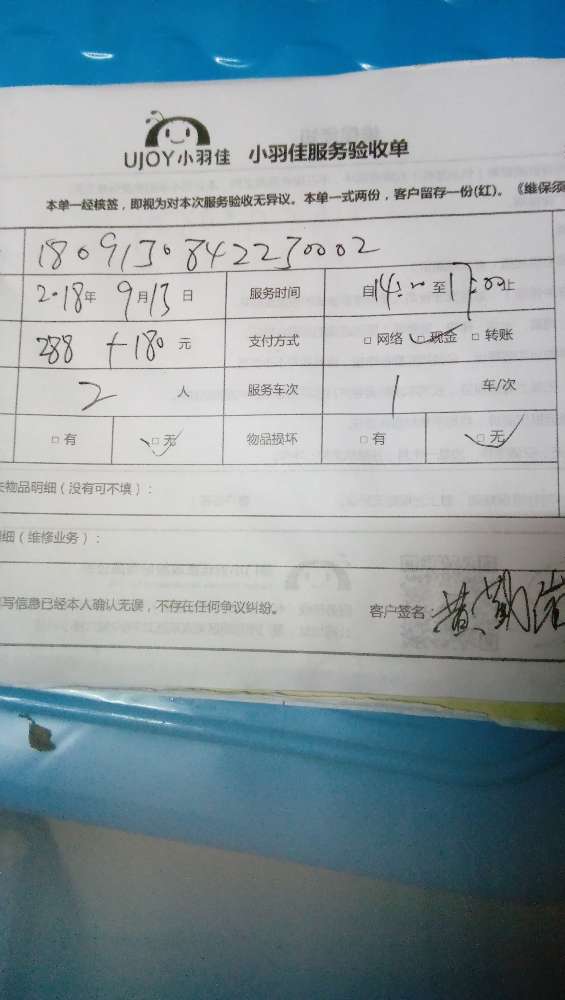 UJOY小羽佳 小羽佳服务验收单
本单一经核签，即视为对本次服务验收无异议。本单一式两份，客户留存一份(红)。《维保须
1809130842230002
2018年 9月13日 服务时间 自14:00至17:00止
288+180 元 支付方式 □ 网络 □ 现金 □ 转账
2 人 服务车次 1 车/次
□ 有 □ 无 物品损坏 □ 有 □ 无
物品明细（没有可不填）：
细（维修业务）：
写信息已经本人确认无误，不存在任何争议纠纷。 客户签名：黄